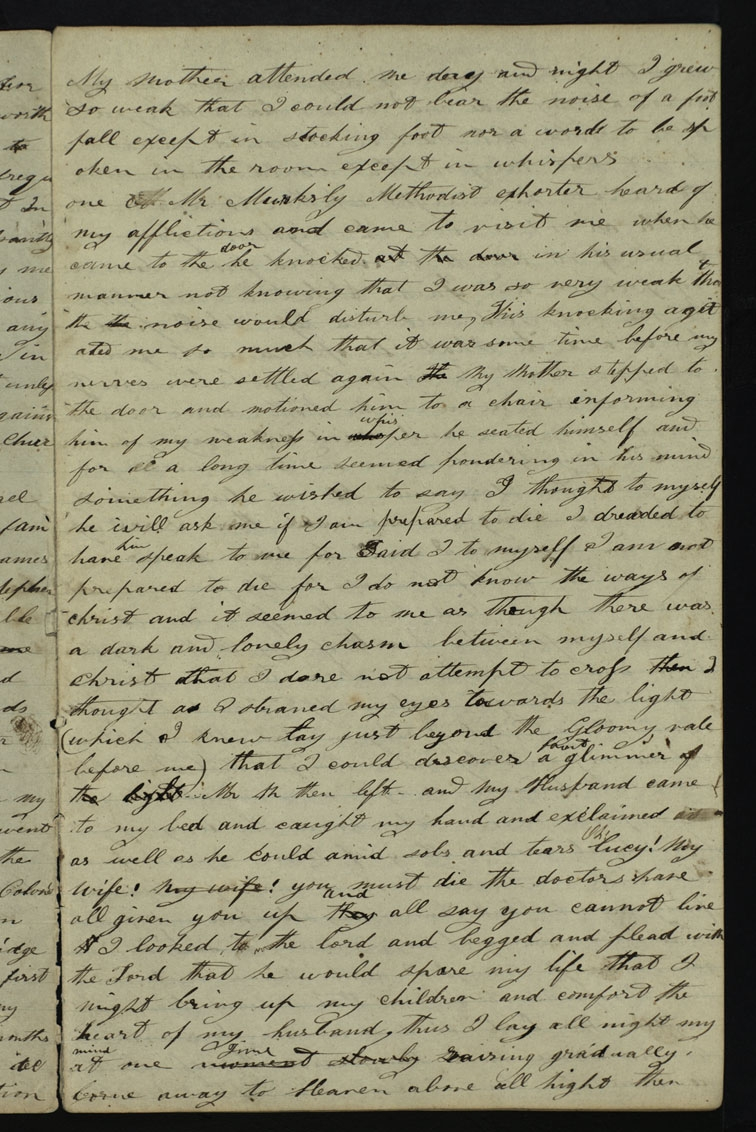 My mother attended me day and night I grew
so weak that I could not bear the noise of a foot
fall except in stocking foot nor a words to be sp
oken in the room except in whispers
one Mr Murkily Methodist exhorter heard of
my afflictions and came to visit me when he
came to the door he knocked at the door in his usual
manner not knowing that I was so very weak & tha
the the noise would disturb me, This knocking agit
ated me so much that it was some time before my
nerves were settled again My Mother stepped to
the door and motioned him to a chair informing
him of my weakness in whisper he seated himself and
for a long time seemed pondering in his mind
something he wished to say I thought to myself
he will ask me if I am prepared to die I dreaded to
have him speak to me for Said I to myself I am not
prepared to die for I do not know the ways of
christ and it seemed to me as though there was
a dark and lonely chasm between myself and
christ that I dare not attempt to cross then I
thought as I straned my eyes towards the light
(which I knew lay just beyond the Gloomy vale
before me) that I could discover a faint glimmer of
the light Mr M then left and My Husband came
to my bed and caught my hand and exclaimed
as well as he could amid sobs and tears Oh Lucy! My
wife! my wife! you must die the doctors have
all given you up and they all say you cannot live
I looked to the Lord and begged and plead with
the Lord that he would spare my life that I
might bring up my children and comfort the
heart of my husband, thus I lay all night my
mind at one Time moment slowly raising gradually
borne away to Heaven above all hight then
for
worth
to
In
me
ious
any
in
again
Cluer
ael
fam
ames
d
ds
my
went
the
n
idge
first
my
months
tion